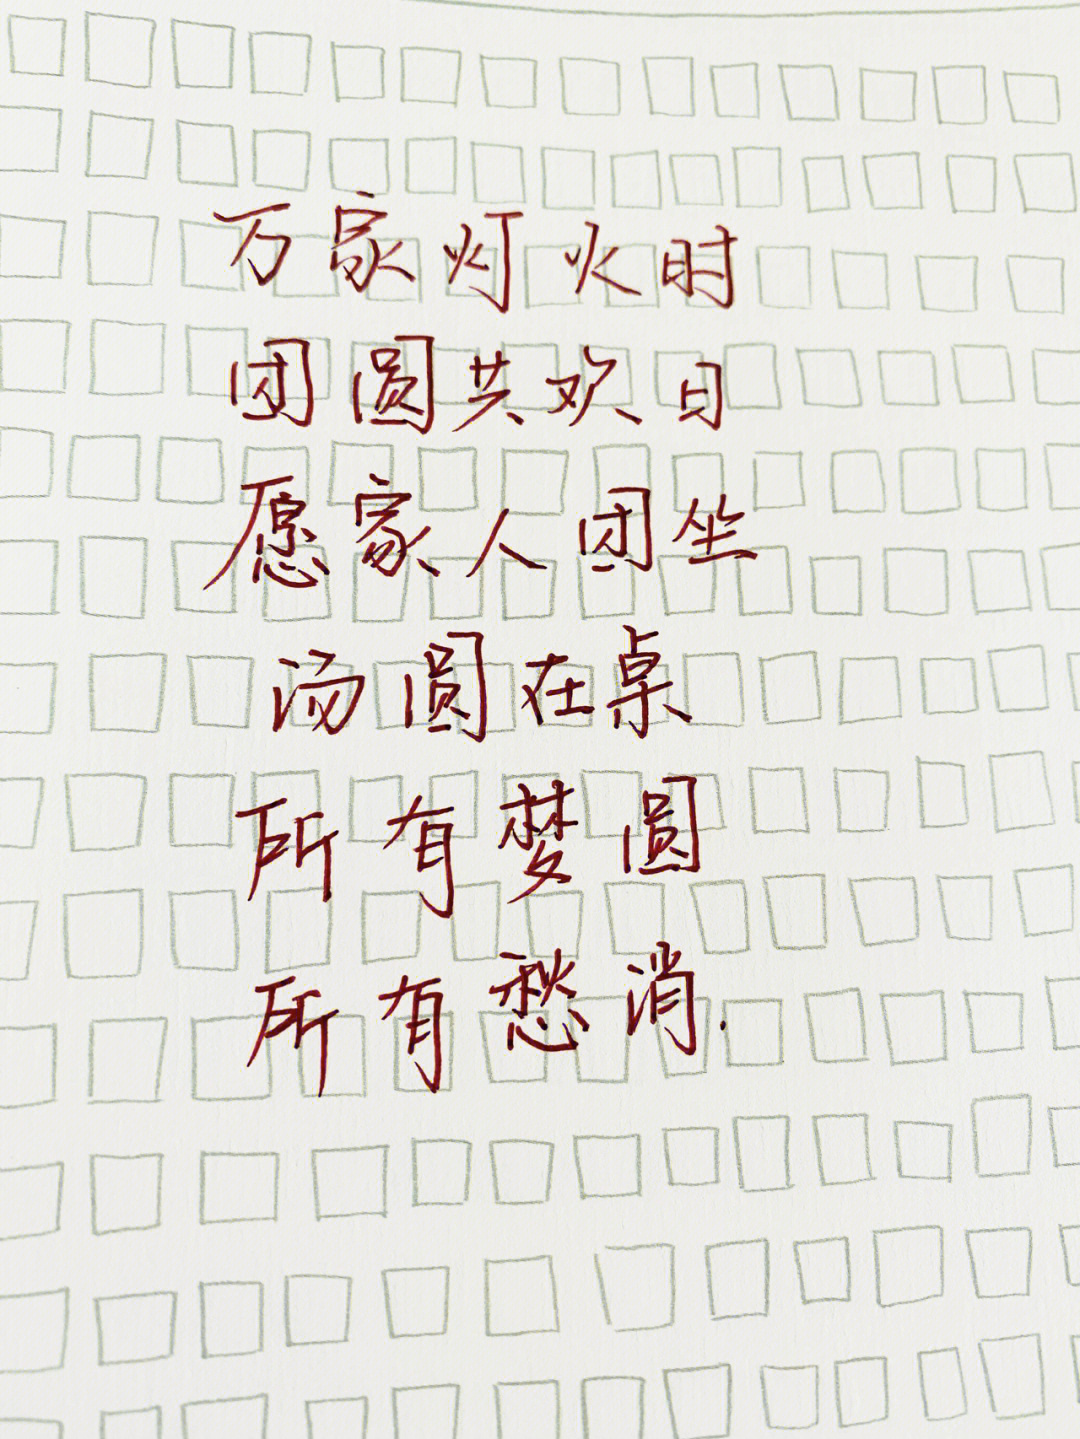 万家灯火时
团圆共欢日
愿家人团坐
汤圆在桌
所有梦圆
所有愁消.